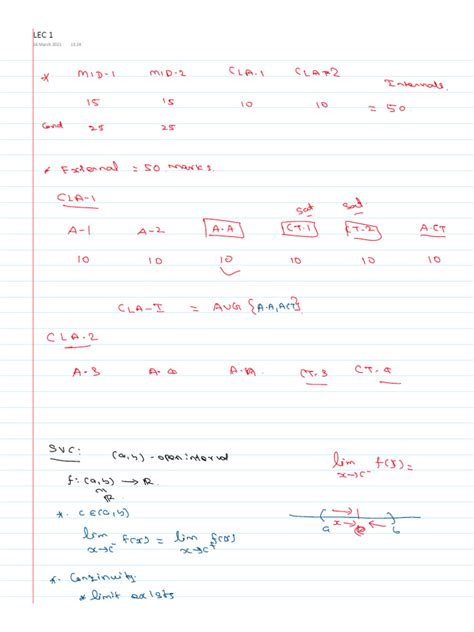 LEC 1
16 March 2021 13:24
* MID-1 MID-2 CLA-1 CLA-2 Internals.
15 15 10 10 = 50
Cond 25 25
* External = 50 marks.
CLA-1
sat sat
A-1 A-2 A.A CT.1 CT.2 A.CT
10 10 10 10 10 10
CLA-I = AVG {A.A, ACT}
CLA-2
A-3 A-4 A.A CT-3 CT-4
SVC: (a,b) - open interval
f: (a,b) → ℝ
ℝ
*. c∈(a,b)
lim x→c⁻ f(x) = lim x→c⁺ f(x)
lim x→c⁻ f(x) =
a x→c b
*. Continuity
* limit exists